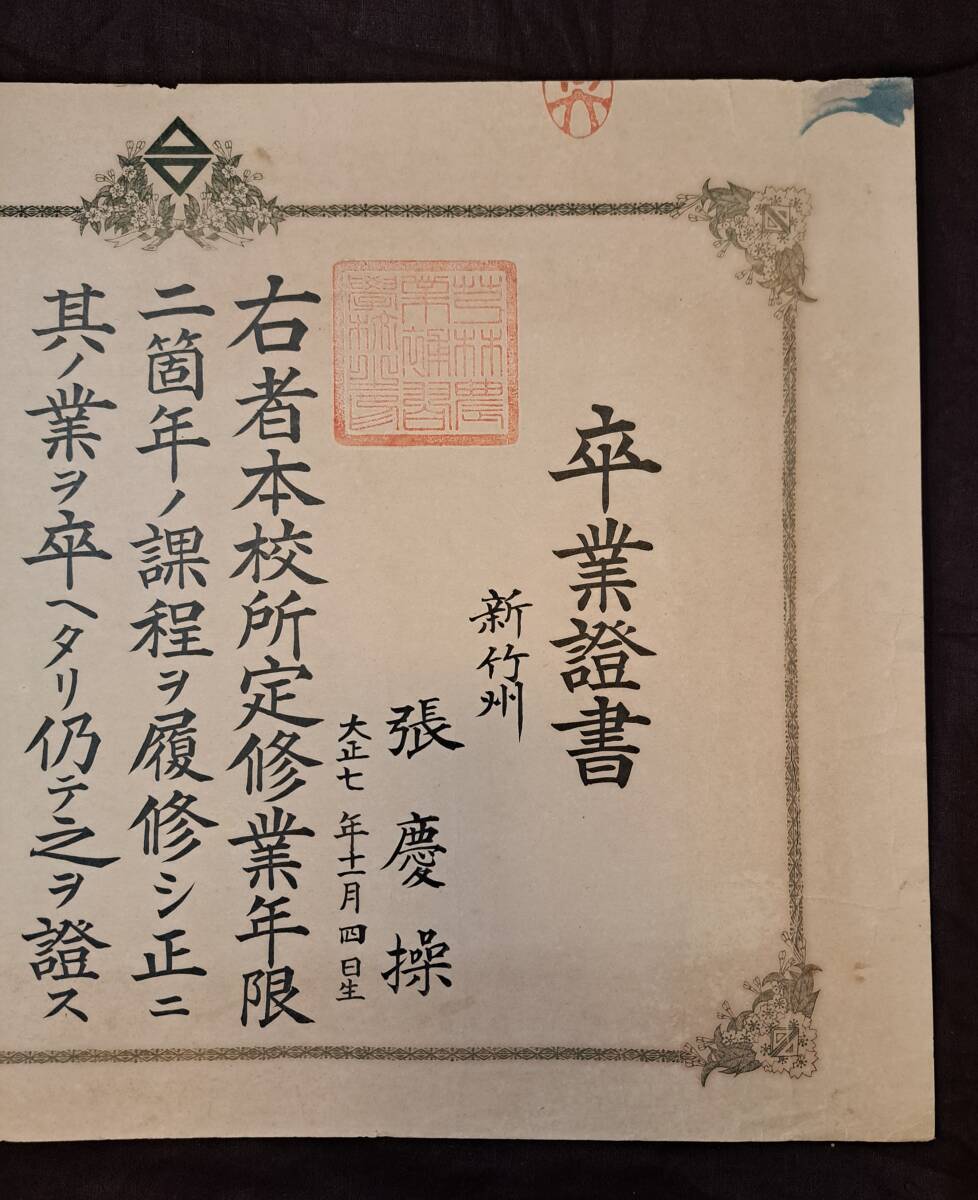 卒業證書
新竹州
張慶操
大正七年十一月四日生
右者本校所定修業年限
二箇年ノ課程ヲ履修シ正ニ
其ノ業ヲ卒ヘタリ仍テ之ヲ證ス